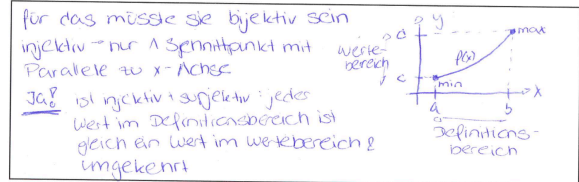 für das müsste sie bijektiv sein
injektiv → nur 1 Schnittpunkt mit
Parallele zu x-Achse
Ja! ist injektiv + surjektiv: jedes
Wert im Definitionsbereich ist
gleich ein Wert im Wertebereich &
umgekehrt
y
d
max
Werte-
bereich
f(x)
c
min
x
a
b
Definitions-
bereich